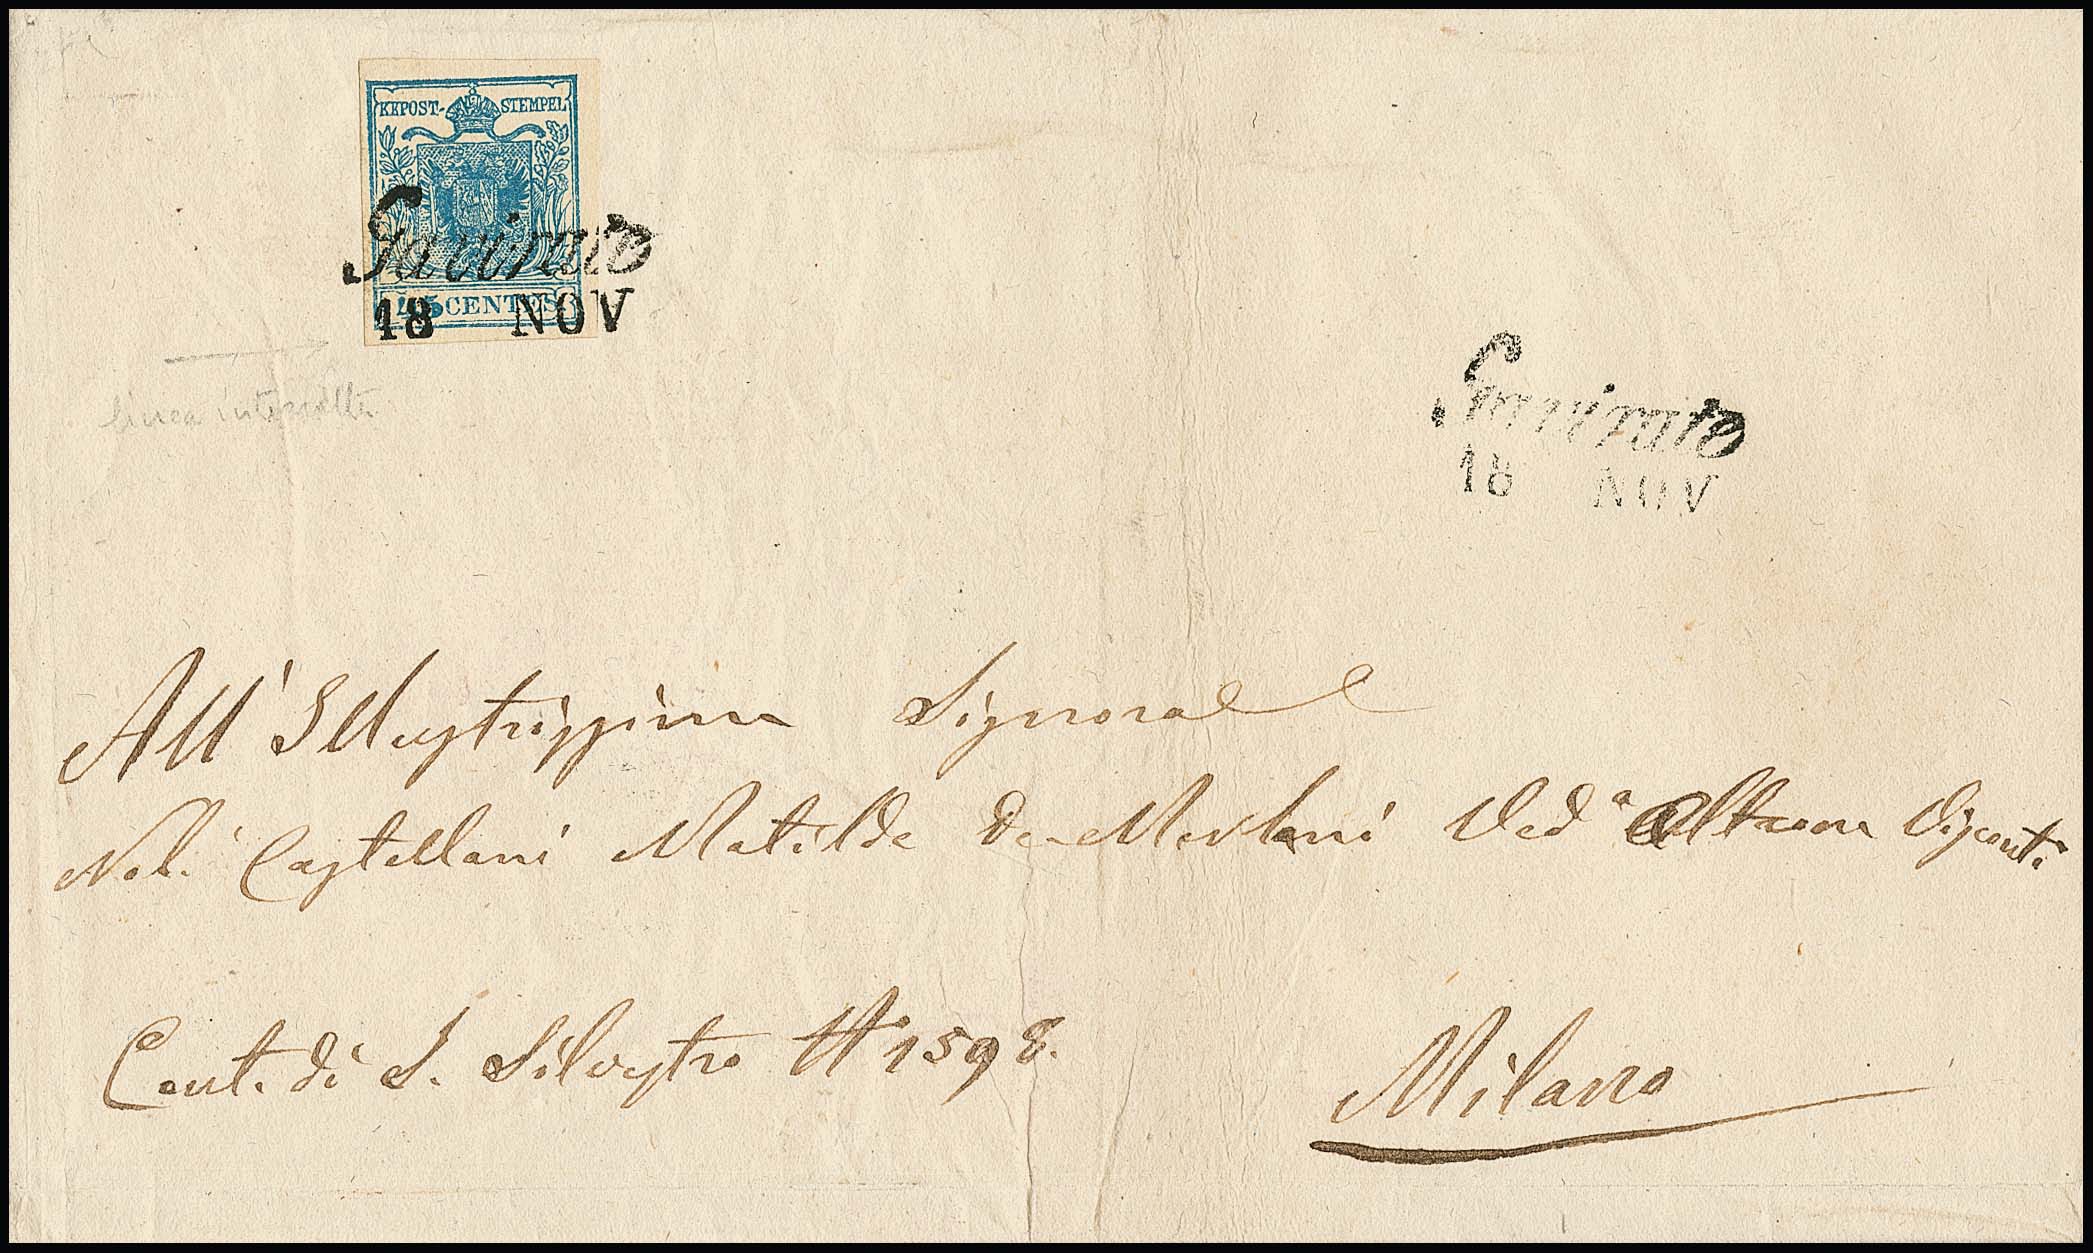 KKPOST-STEMPEL
Gavirate
45 CENTES
18 NOV
linea interrotta
Gavirate
18 NOV
All' Illustrissima Signora
Nob. Castellani Matilde De-Merlani Ved.a Visconti
Cont. di S. Silvestro N° 1598.
Milano